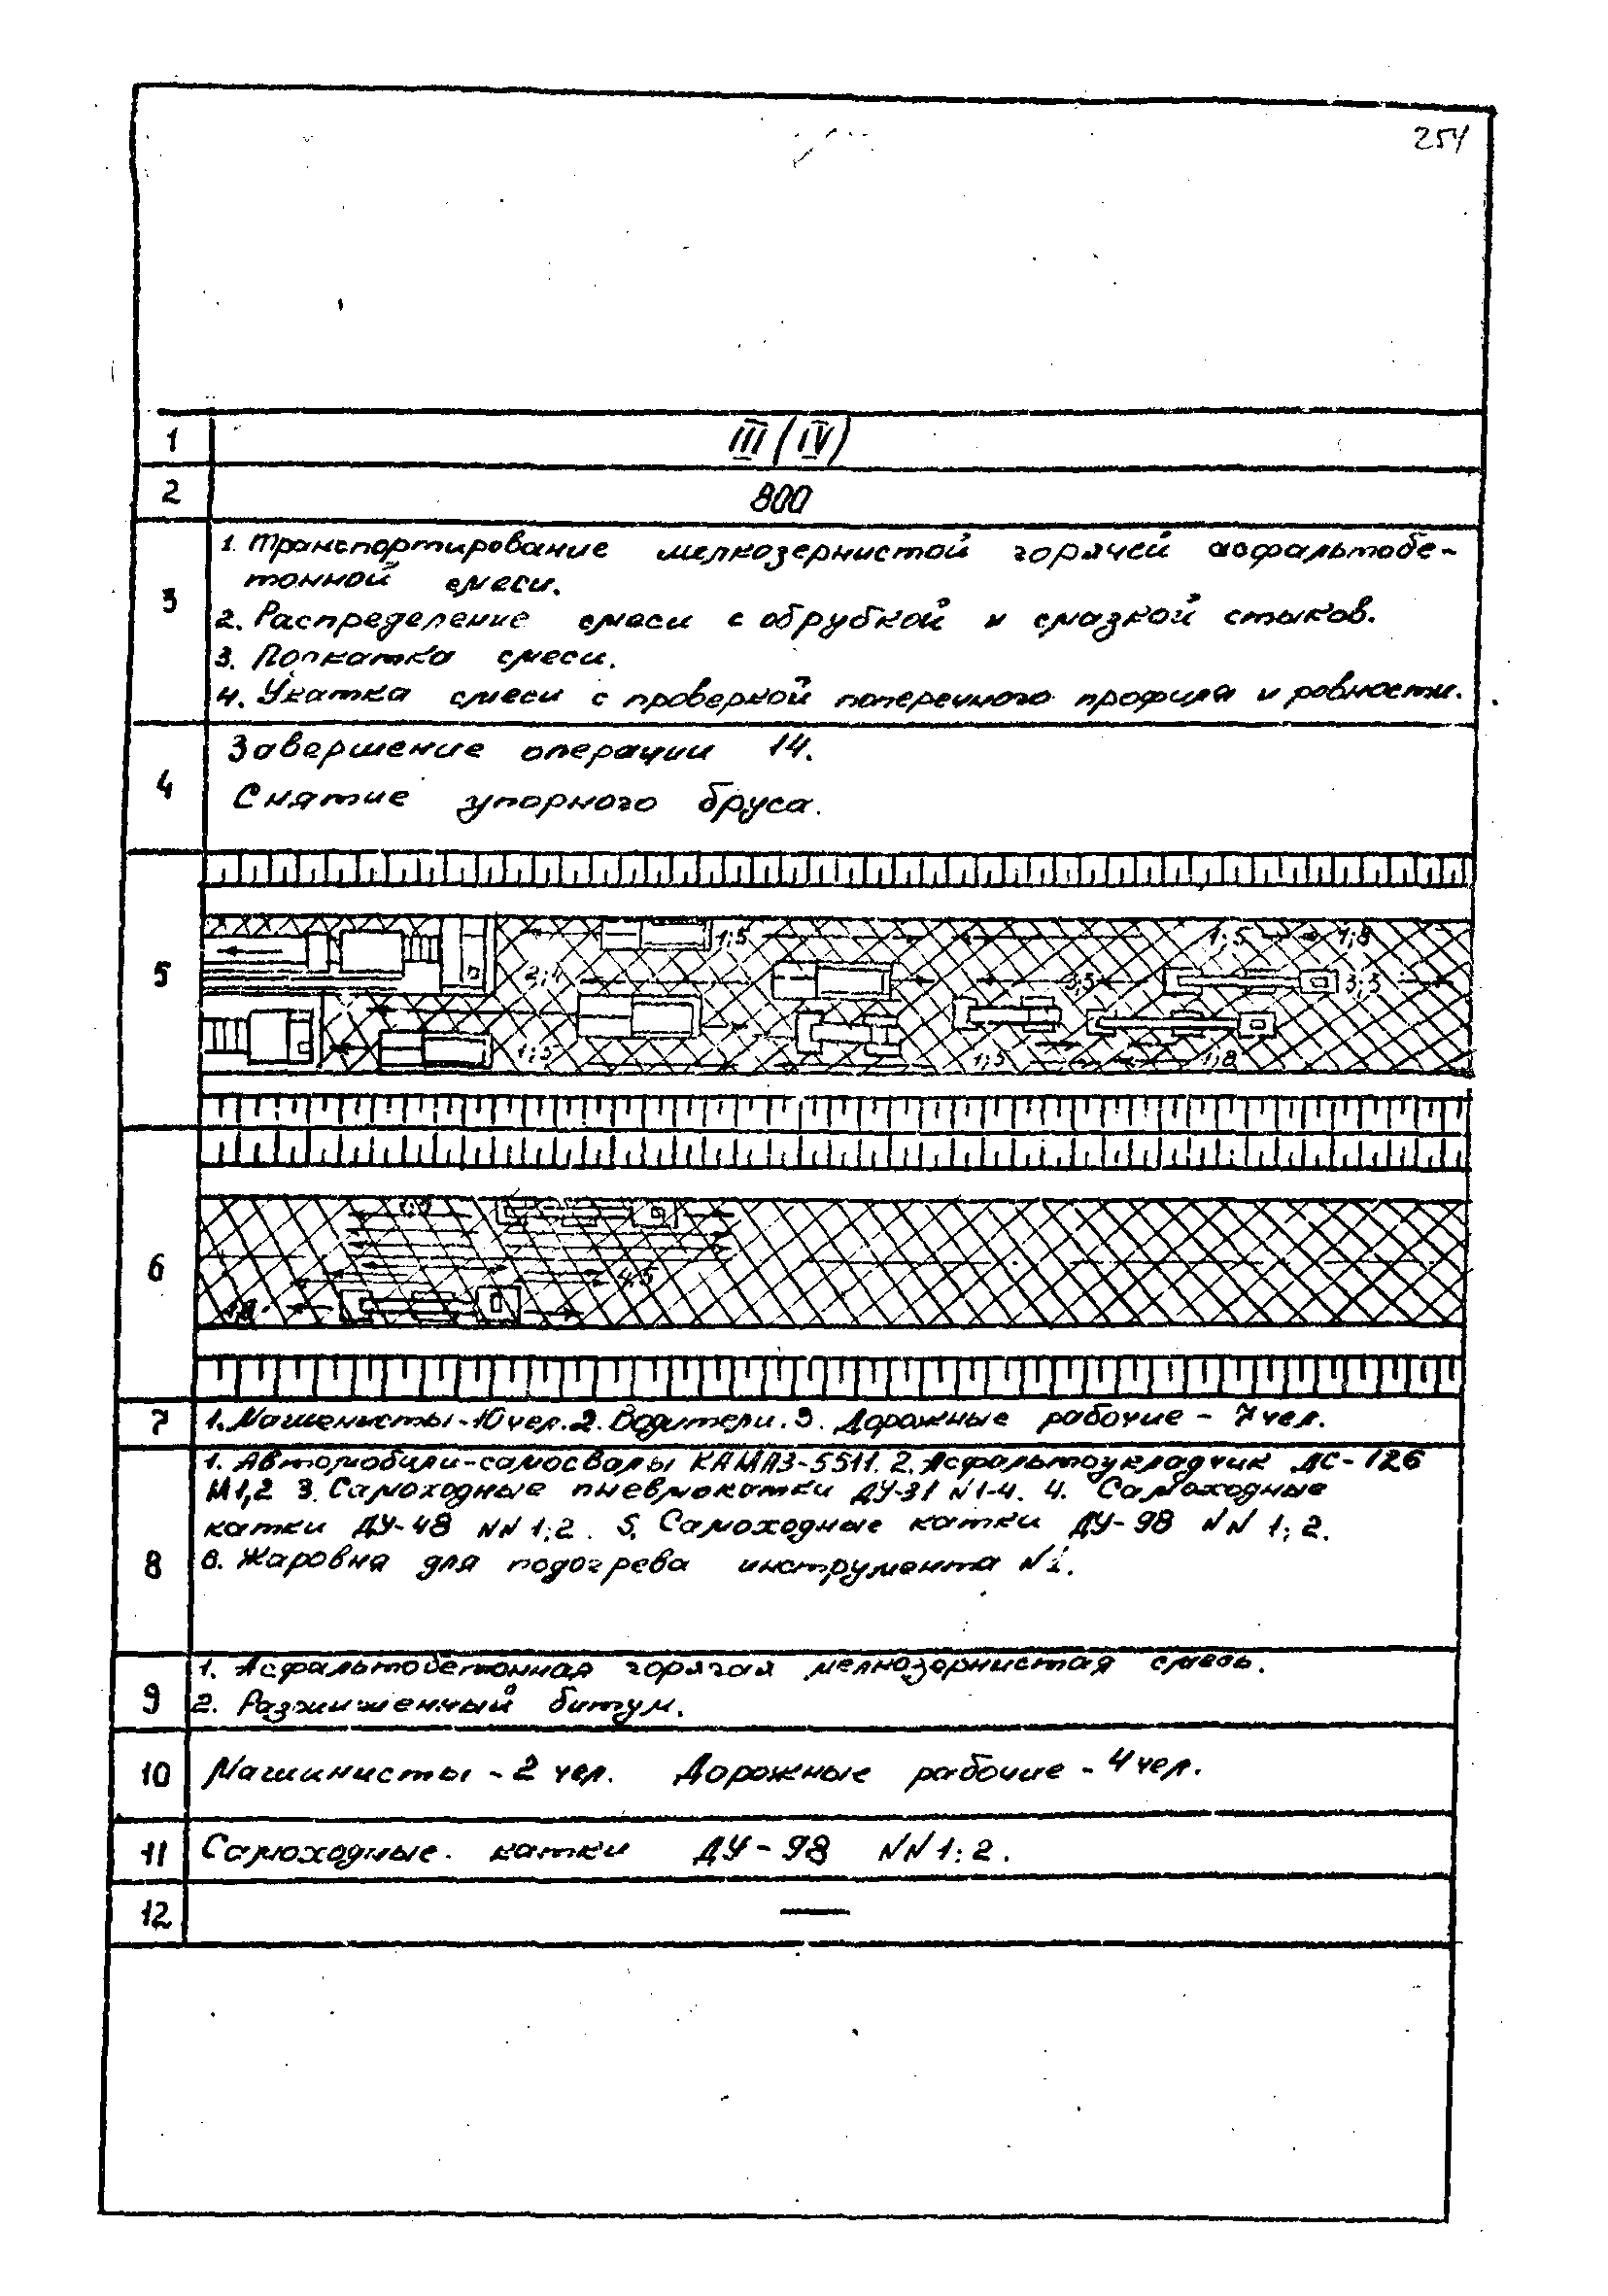 254
1
III (IV)
2
800
3
1. Транспортирование мелкозернистой горячей асфальтобе-
тонной смеси.
2. Распределение смеси с обрубкой и смазкой стыков.
3. Подкатка смеси.
4. Укатка смеси с проверкой поперечного профиля и ровности.
4
Завершение операции 14.
Снятие упорного бруса.
5
1;5 1;5 1;8
2;4 3;5 3;3
1;5 1;5 1;8
6
4;5
7
1. Машенисты-10 чел. 2. Водители. 3. Дорожные рабочие - 7 чел.
8
1. Автомобили-самосвалы КАМАЗ-5511. 2. Асфальтоукладчик ДС-126
N1,2 3. Самоходные пневмокатки ДУ-31 N1-4. 4. Самоходные
катки ДУ-48 NN 1;2. 5. Самоходные катки ДУ-98 NN 1; 2.
6. Жаровня для подогрева инструмента N1.
9
1. Асфальтобетонная горячая мелкозернистая смесь.
2. Разжиженный битум.
10
Машинисты - 2 чел. Дорожные рабочие - 4 чел.
11
Самоходные катки ДУ-98 NN 1; 2.
12
—